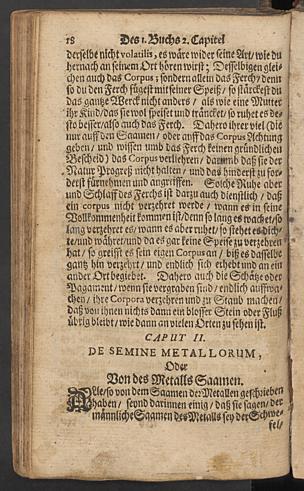 18 Des 1. Buchs 2. Capitel
derselbe nicht volatilis, es wäre wider seine Art/ wie du
hernach an seinem Ort hören wirst; Desselbigen glei-
chen auch das Corpus; sondern allein das Ferch/ denn
so du den Ferch fügest mit seiner Speiß/ so stärckest du
das gantze Werck nicht anders / als wie eine Mutter
ihr Kind/ das sie wol speiset und träncket/ so ruhet es de-
sto besser/ also auch das Ferch. Dahero ihrer viel (die
nur auff den Saamen / oder auff das Corpus Achtung
geben / und wissen umb das Ferch keinen gründlichen
Bescheid) das Corpus verliehren / darumb daß sie der
Natur Progreß nicht halten / und das hinderst zu for-
derst fürnehmen und angreiffen. Solche Ruhe aber
und Schlaff des Ferchs ist darzu auch dienstlich / daß
ein corpus nicht verzehret werde / wann es in seine
Vollkommenheit kommen ist/ denn so lang es wachet/ so
lang verzehret es/ wann es aber ruhet/ so stehet es dich-
te/ und währet/ und da es gar keine Speise zu verzehren
hat / so greifft es sein eigen Corpus an / biß es dasselbe
gantz hin verzehrt / und endlich sich erhebt und an ein
ander Ort begiebet. Dahero auch die Schätze oder
Pagament/ wenn sie vergraben sind / endlich auffwa-
chen / ihre Corpora verzehren und zu Staub machen/
daß von ihnen nichts dann ein blosser Stein oder Fluß
übrig bleibt/ wie dann an vielen Orten zu sehen ist.
CAPUT II.
DE SEMINE METALLORUM,
Oder
Von des Metalls Saamen.
ALle/ so von dem Saamen der Metallen geschrieben
haben / seynd darinnen einig/ daß sie sagen/ der
männliche Saamen des Metalls sey der Schwe-
fel/